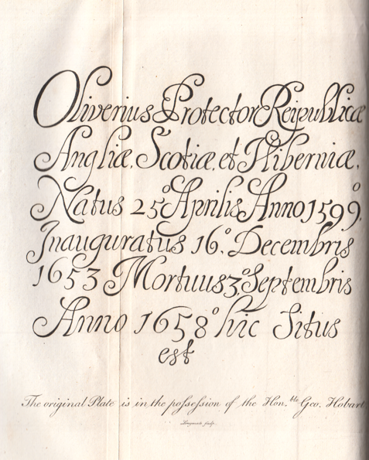 Oliverius Protector Reipublicæ
Angliæ, Scotiæ, et Hiberniæ,
Natus 25º Aprilis Anno 1599º
Inauguratus 16º. Decembris
1653 Mortuus 3º Septembris
Anno 1658º hic Situs
est
The original Plate is in the possession of the Hon.ble Geo. Hobart